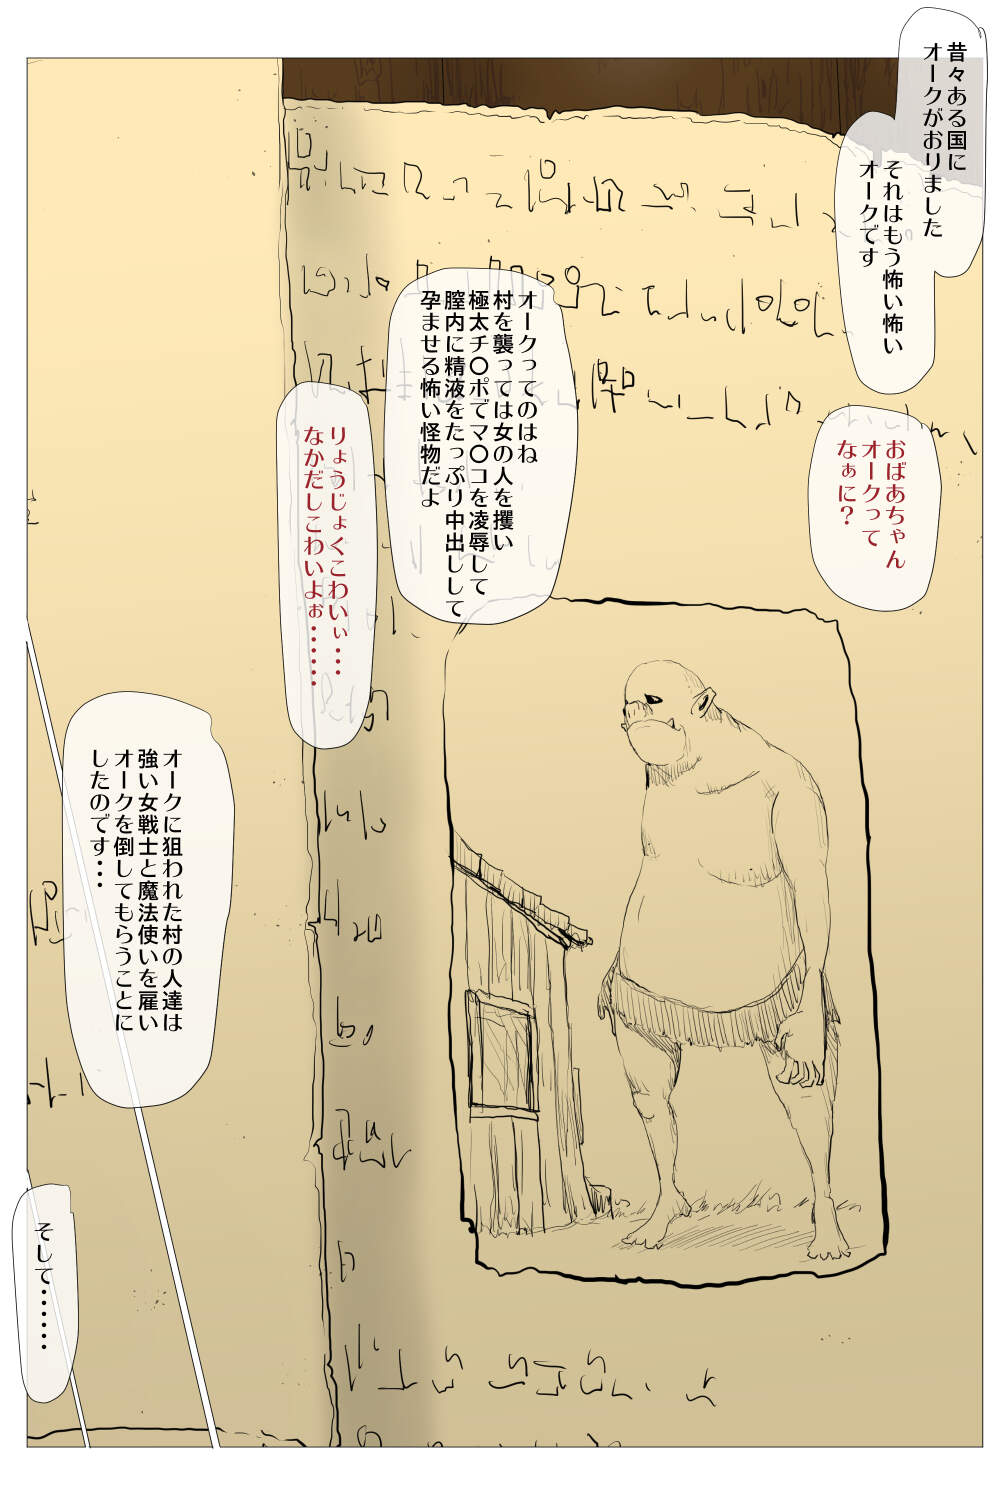 昔々ある国に
オークがおりました
それはもう怖い怖い
オークです
おばあちゃん
オークって
なぁに？
オークってのはね
村を襲っては女の人を攫い
極太チ〇ポでマ〇コを凌辱して
膣内に精液をたっぷり中出しして
孕ませる怖い怪物だよ
りょうじょくこわいぃ・・・
なかだしこわいよぉ・・・・・・
オークに狙われた村の人達は
強い女戦士と魔法使いを雇い
オークを倒してもらうことに
したのです・・・
そして・・・・・・